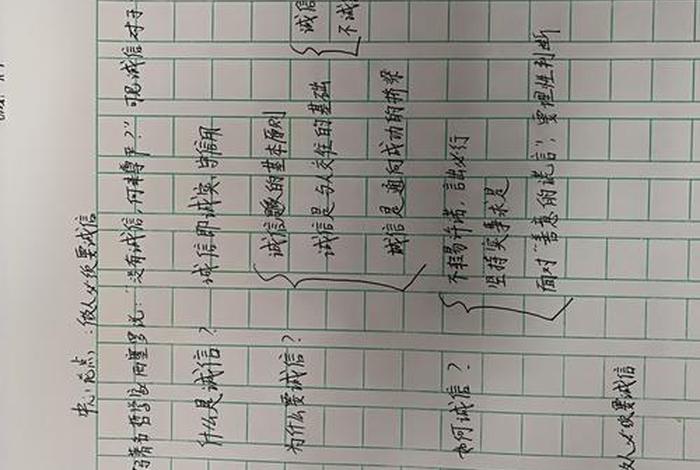 中心论点：做人必须要诚信
哲学家西塞罗说：“没有诚信，何来尊严？”可见诚信对于
什么是诚信？ 诚信即诚实、守信用
诚信
不诚
为什么要诚信？
的基本原则
诚信是与人交往的基础
诚信是通向成功的桥梁
如何诚信？
不轻易许诺，言出必行
坚持实事求是
面对“善意的谎言”，要理性判断
人必须要诚信